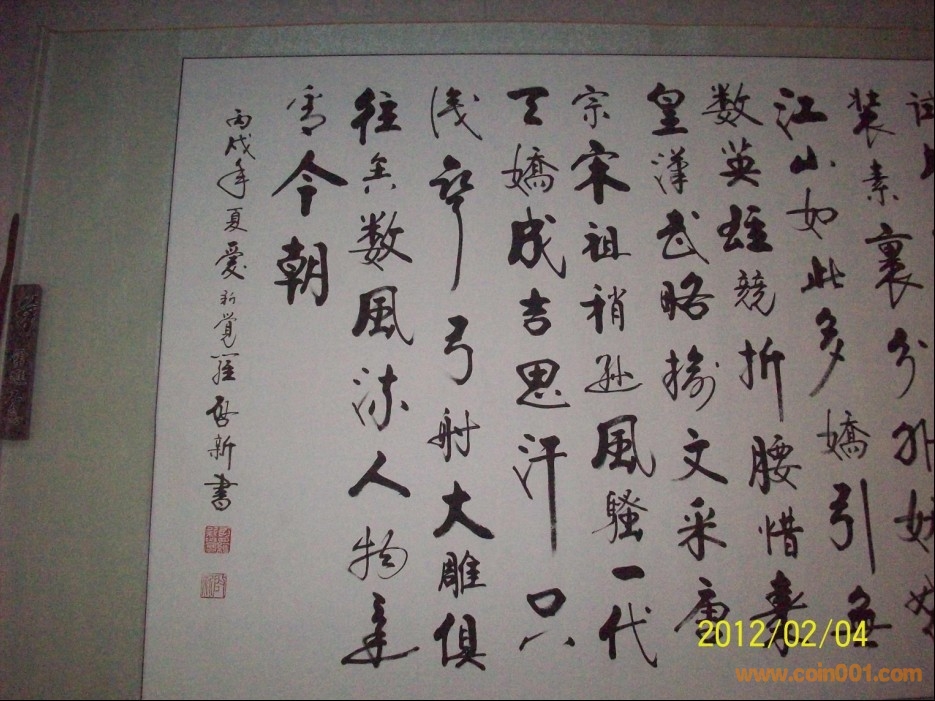 試比
装素裹分外妖娆
江山如此多嬌引無
数英雄競折腰惜秦
皇漢武略输文采唐
宗宋祖稍遜風騷一代
天嬌成吉思汗只
識彎弓射大雕俱
往矣数風流人物還
看今朝
丙戌年夏愛新覺羅啓新書
2012/02/04
www.coin001.com